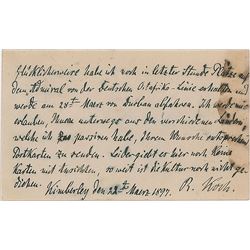 Glücklicherweise habe ich noch in letzter Stunde Plätze auf
dem "Admiral" von der Deutschen Ostafrika-Linie erhalten und
werde am 28ten Maerz von Durban abfahren. Ich werde mir
erlauben, Ihnen unterwegs aus den verschiedenen Ländern,
welche ich zu passiren habe, Ihrem Wunsche entsprechend
Postkarten zu senden. Leider giebt es hier noch keine
Karten mit Ansichten, so weit ist die Kultur noch nicht ge-
diehen.
Kimberley den 22ten Maerz 1897. R. Koch.